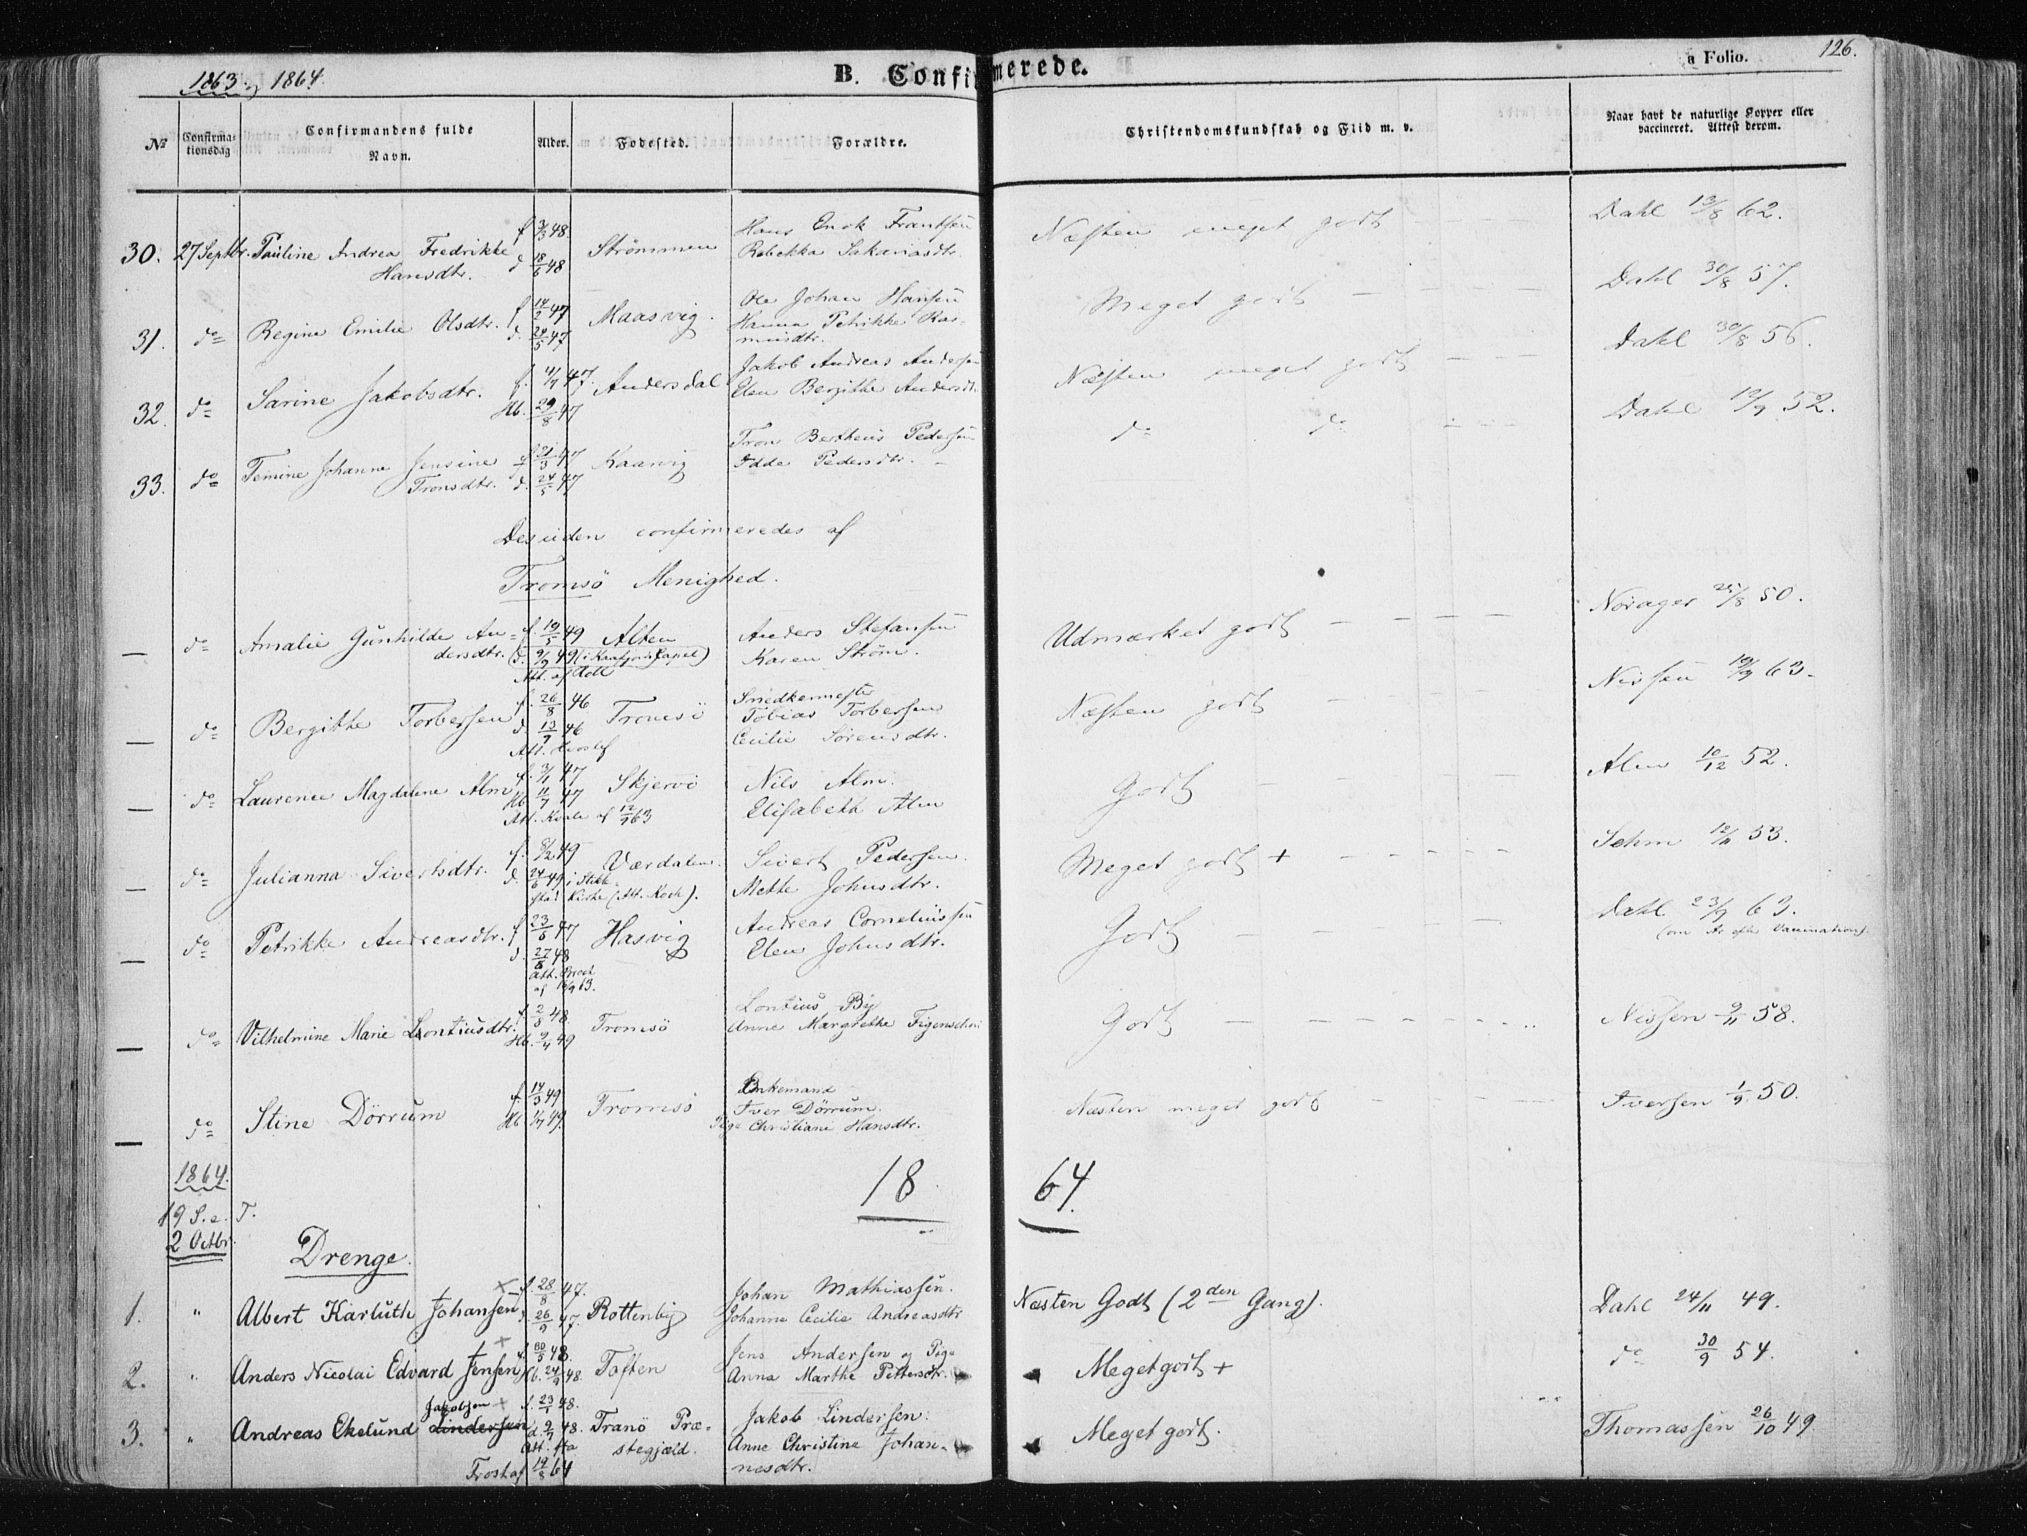 1863 og 1864.
B. Confirmerede.
a Folio. 126.
№ Confirmationsdag Confirmandens fulde Navn. Alder. Fødested. Forældre. Christendomskundskab og Flid m. v. Naar havt de naturlige Kopper eller vaccineret. Attest derom.
f 3/3 48. Hans Enok Frantsen
30. 27 Septbr. Pauline Andrea Fredrikke Strømmen Rebekka Sakariasdtr. Næsten meget godt Dahl 13/8 62.
Hansdtr. d 18/6 48
f 14/2 47 Ole Johan Hansen
31. do Regine Emilie Olsdtr. Maasvig. Hanna Petrikke Ras- Meget godt Dahl 30/8 57.
d. 24/5 47 musdtr.
f. 4/7 47. Jakob Andreas Andersen
32. do Sarine Jakobsdtr. Andersdal Elen Bergitke Andersdtr. Næsten meget godt Dahl 30/8 56.
Hb. 29/8 47
f 21/3 47 Tron Bertheus Pedersen
33. do Temine Johanne Jensine Kaarvig Odde Pedersdtr. do do Dahl 12/9 52.
Tronsdtr. d. 24/5 47
Desuden confirmeredes af
Tromsö Menighed.
— do Amalie Gunhilde An- f. 19/5 49 Alten Anders Stefansen Udmærket godt Norager 25/8 50.
dersdtr. d. 9/9 49 (i Kaafjords Capel) Karen Strøm.
Att. af
f. 26/8 46 Snedkermester
— do Bergitte Torbersen Tromsö Tobias Torbersen Næsten godt Nissen 19/9 63.
d. 13/9 46 Cecilie Sørensdtr.
Att.
f. 3/1 47
— do Laurence Magdalene Alm Skjervö Nils Alm. Godt Alm 10/12 52.
Hb 11/7 47 Elisabeth Alm
Att. af 12/9 63
f. 8/2 49
— do Julianna Sivertsdtr. Værdalen. Sivert Pedersen. Meget godt + Sehm 12/11 53.
d. 24/6 49 i Stikle- Mette Johnsdtr.
stad Kirke (Att. Koch).
f 23/5 47 Andreas Corneliussen
— do Petrikke Andreasdtr. Hasvig Elen Johnsdtr. Godt Dahl 23/9 63.
d. 27/8 48 (om Ar efter Vaccination).
Att.
af 12/9 63.
f. 2/5 48 Lontius By
— do Vilhelmine Marie Lontiusdtr. Tromsö Anne Margrethe Figenschou Godt Nissen 9/11 58.
Hb. 9/4 49
f. 14/3 49 Enkemand
— do Stine Dörrum Tromsö Iver Dörrum. Næsten meget godt Iversen 1/9 50.
Hb 1/7 49. Pige Christiane Hansdtr.
1864.
18 64.
19 S. e. T.
2 Octbr.
Drenge.
× f. 28/8 47. Johan Mathiassen.
1. " Albert Karluth Johansen Rottenby Johanna Cecilie Andreasdtr Næsten Godt (2den Gang). Dahl 24/11 49.
d. 26/9 47.
× f. 30/5 48. Jens Andersen og Pige
2. " Anders Nicolai Edvard Jensen Toften Anna Marthe Pettersdtr. Megetgodt + do 30/9 54.
Hb. 24/9 48.
Jakobsen × f. 23/1 48. Jakob Lindersen.
3. " Andreas Ekelund Lindersen d. 9/7 48. Tranö Præ- Anne Christine Johan- Megetgodt. Thomassen 26/10 49
Att. fra stegjæld. nesdtr.
Frost af 19/8 64